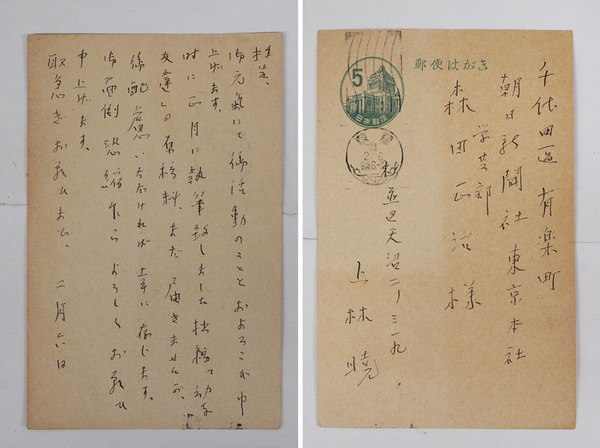 拝啓、
御元気にて御活動のこととおよろこび申
上げます。
時に正月に執筆致しました拙稿「幼な
友達」の原稿料、まだ届きませんが、
御配慮いただければ幸に存じます。
御面倒恐縮乍らよろしくお願ひ
申上げます。
取急ぎお願ひまで、 二月六日
郵便はがき
5
日本郵便
千代田区有楽町
朝日新聞社東京本社
学芸部
森田正治様
杉並区天沼二ノ三一九、
上林暁